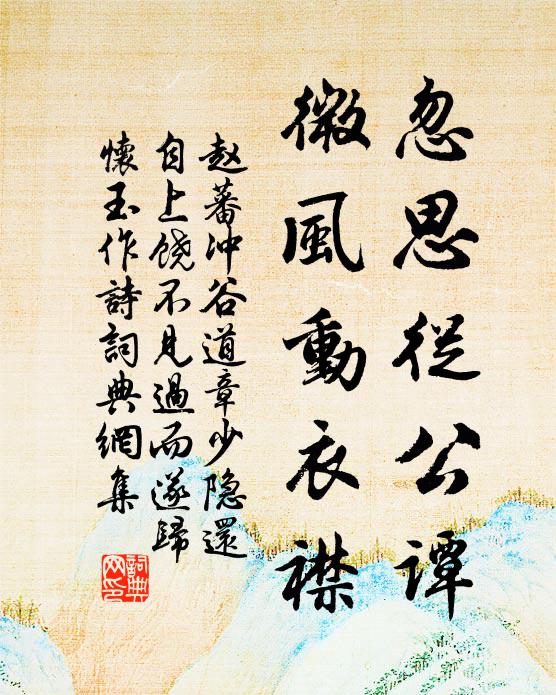 忽思從公谭
微風動衣襟
赵蕃冲谷道章少隐還
自上饶不见過而遂歸
懷玉作詩詞典網集
詞典网印